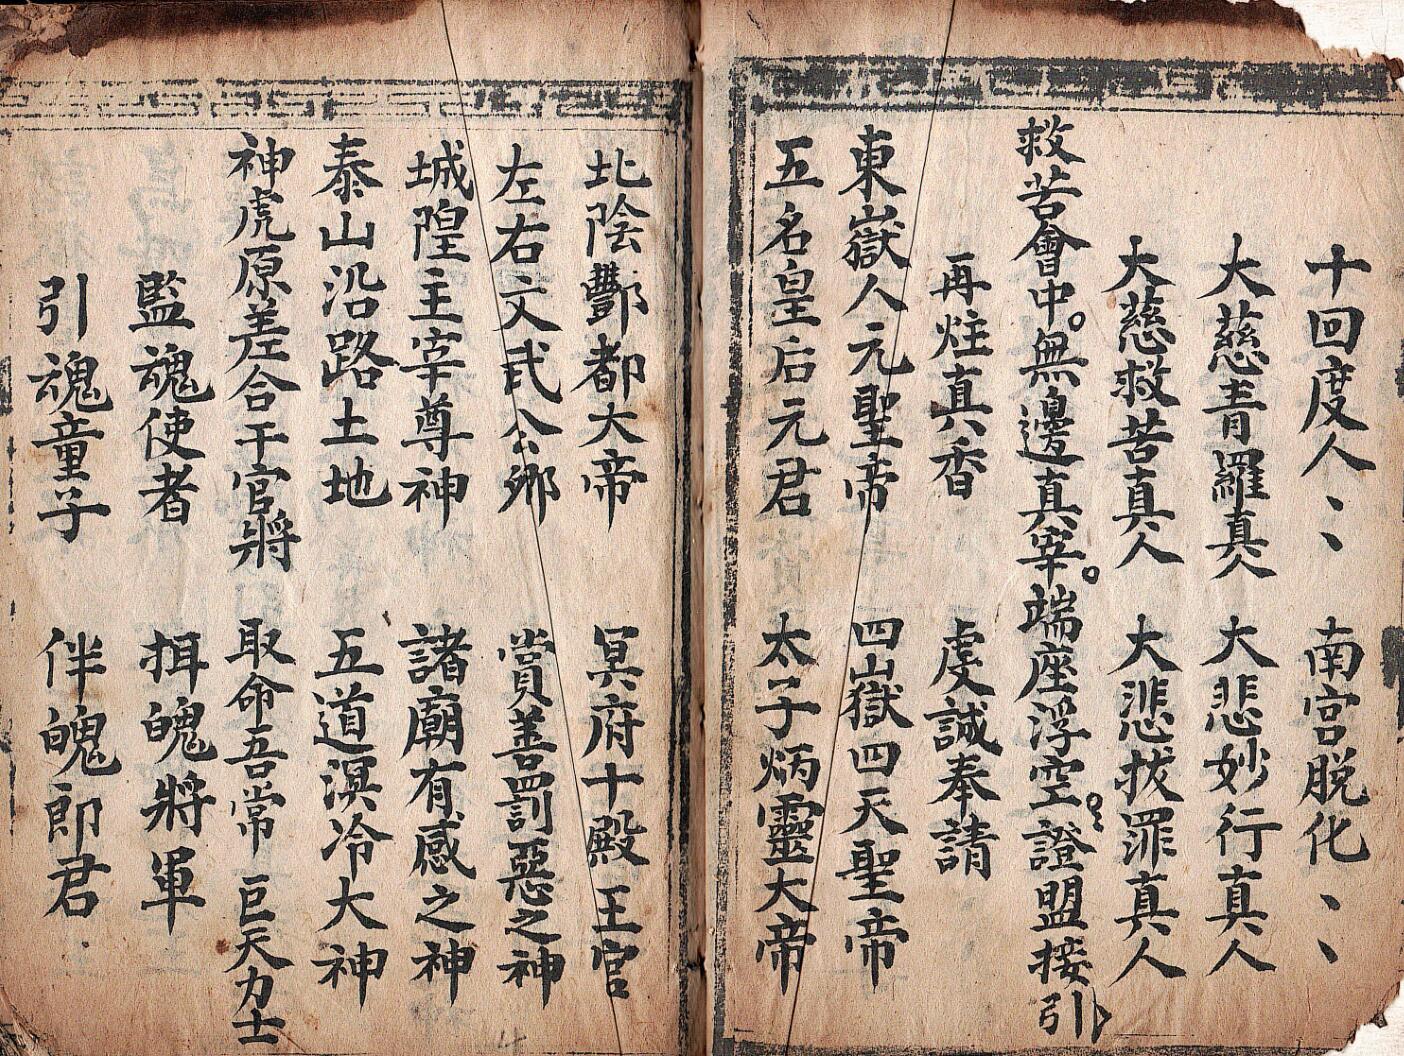 十回度人、、　南宮脱化、、
大慈青羅真人　大悲妙行真人
大慈救苦真人　大悲拔罪真人
救苦會中。無邊真宰。端座浮空。證盟接引
再炷真香　虔誠奉請
東嶽人元聖帝　四山嶽四天聖帝
五名皇后元君　太子炳靈大帝
北陰酆都大帝　冥府十殿王官
左右文武公卿　賞善罰惡之神
城隍主宰尊神　諸廟有感之神
泰山沿路土地　五道溟冷大神
神虎原差合干官將　取命吾常　巨天力士
監魂使者　押魄將軍
引魂童子　伴魄郎君